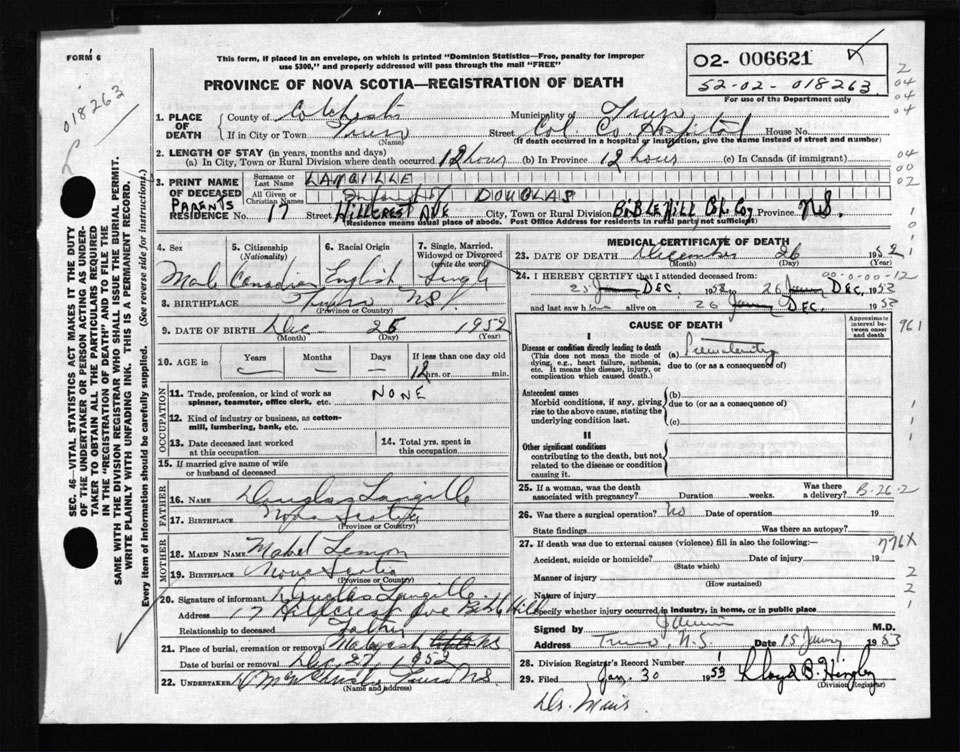 FORM 6
This form, if placed in an envelope, on which is printed "Dominion Statistics—Free, penalty for improper
use $300," and properly addressed will pass through the mail "FREE"
PROVINCE OF NOVA SCOTIA—REGISTRATION OF DEATH
O2- 006621
52-02-018263
For use of the Department only
018263
1. PLACE OF DEATH
County of Colchester Municipality of Truro
If in City or Town Truro Street Col. Co. Hospital House No.
(Name) (If death occurred in a hospital or institution, give the name instead of street and number)
2. LENGTH OF STAY (in years, months and days)
(a) In City, Town or Rural Division where death occurred 12 hours (b) In Province 12 hours (c) In Canada (if immigrant)
3. PRINT NAME OF DECEASED
Surname or Last Name LANGILLE
All Given or Christian Names DOUGLAS
PARENTS
RESIDENCE No. 17 Street HILLCREST AVE City, Town or Rural Division BIBLE HILL Province N.S.
(Residence means usual place of abode. Post Office Address for residents in rural parts not sufficient)
4. Sex Male
5. Citizenship (Nationality) Canadian
6. Racial Origin English
7. Single, Married, Widowed or Divorced (write the word) Single
8. BIRTHPLACE Truro NS
(Province or Country)
9. DATE OF BIRTH Dec 25 1952
(Month) (Day) (Year)
10. AGE in Years Months Days If less than one day old
12 hrs. or min.
OCCUPATION
11. Trade, profession, or kind of work as spinner, teamster, office clerk, etc. NONE
12. Kind of industry or business, as cotton-mill, lumbering, bank, etc.
13. Date deceased last worked at this occupation
14. Total yrs. spent in this occupation
15. If married give name of wife or husband of deceased
FATHER
16. NAME Douglas Langille
17. BIRTHPLACE Nova Scotia
(Province or Country)
MOTHER
18. MAIDEN NAME Mabel Lemon
19. BIRTHPLACE Nova Scotia
(Province or Country)
20. Signature of informant Douglas Langille
Address 17 Hillcrest Ave Bible Hill
Relationship to deceased Father
21. Place of burial, cremation or removal Malagash NS
Date of burial or removal Dec 27 1952
22. UNDERTAKER Truro NS.
(Name and Address)
MEDICAL CERTIFICATE OF DEATH
23. DATE OF DEATH December 26 1952
(Month) (Day) (Year)
24. I HEREBY CERTIFY that I attended deceased from
00-0-00-12
25 DEC. 1952 26 DEC. 1953
and last saw h alive on 26 DEC. 1953
CAUSE OF DEATH
Approximate interval between onset and death
I
Disease or condition directly leading to death
(This does not mean the mode of dying, e.g., heart failure, asthenia, etc. It means the disease, injury, or complication which caused death.)
(a) Prematurity
due to (or as a consequence of)
961
Antecedent causes
Morbid conditions, if any, giving rise to the above cause, stating the underlying condition last.
(b)
due to (or as a consequence of)
(c)
II
Other significant conditions
contributing to the death, but not related to the disease or condition causing it.
25. If a woman, was the death associated with pregnancy? Duration weeks. Was there a delivery? B-26-2
26. Was there a surgical operation? No Date of operation 19
State findings Was there an autopsy?
27. If death was due to external causes (violence) fill in also the following:—
776X
Accident, suicide or homicide? Date of injury 19
(State which)
Manner of injury
(How sustained)
Nature of injury
Specify whether injury occurred in industry, in home, or in public place
Signed by M.D.
Address Truro, N.S. Date 15 1953
28. Division Registrar's Record Number 1
29. Filed Jan. 30 1953 Lloyd B. Hingley
(Division Registrar)
Dr. Muir
SEC. 46—VITAL STATISTICS ACT MAKES IT THE DUTY
OF THE UNDERTAKER OR PERSON ACTING AS UNDER-
TAKER TO OBTAIN ALL THE PARTICULARS REQUIRED
IN THE "REGISTRATION OF DEATH" AND TO FILE THE
SAME WITH THE DIVISION REGISTRAR WHO SHALL ISSUE THE BURIAL PERMIT.
WRITE PLAINLY WITH UNFADING INK. THIS IS A PERMANENT RECORD.
Every item of information should be carefully supplied. (See reverse side for instructions.)
2
04
04
04
04
00
02